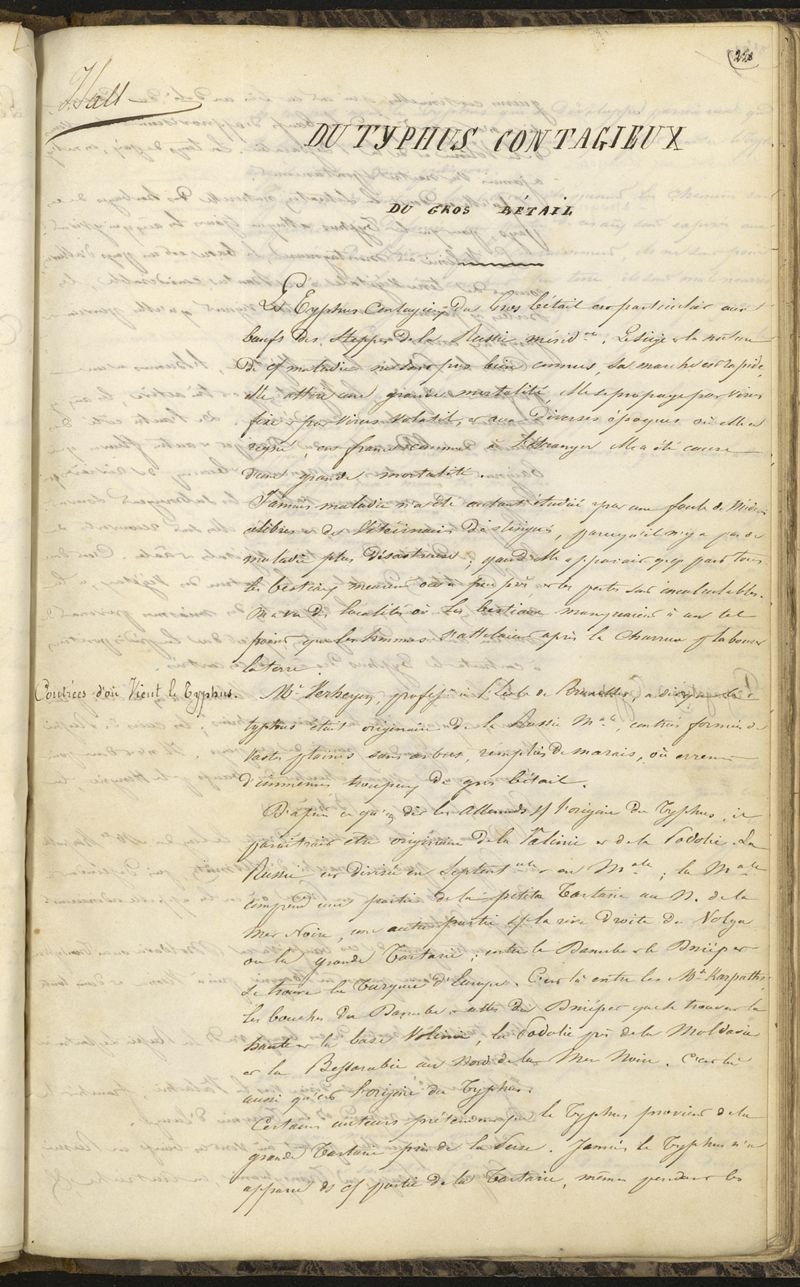 228
Hall
DU TYPHUS CONTAGIEUX
DU GROS BÉTAIL
Le Typhus Contagieux du Gros bétail est particulier aux
bœufs des Steppes de la Russie mérid.le, Le siège & la nature
de cette maladie ne sont pas bien connus, sa marche est rapide,
elle attire une grande mortalité, elle se propage par virus
fixe & par virus volatil, & aux diverses époques où elle a
régné, en france comme à l'étranger elle a été cause
d'une grande mortalité.
Jamais maladie n'a été autant étudiée par une foule de médecins
célèbres & des Vétérinaires distingués, parcequ'il n'y a pas de
maladie plus désastreuse; quand elle apparait qq part tous
les bestiaux meurent ou à peu près & les pertes sont incalculables.
On a vu des localités où les bestiaux manquaient à un tel
point que les hommes s'attelaient après la charrue pr labourer
la terre.
Contrées d'où Vient le Typhus.
Mr Verheyen, profess. à l'École de Bruxelles, a dit que le
typhus était originaire de la Russie M.ale, contrée formée de
vastes plaines sans arbres, remplies de marais, où errent
d'immenses troupeaux de gros bétail.
D'après ce qu'ont dit les Allemands sr l'origine du Typhus, il
paraîtrait être originaire de la Volinie & de la Podolie. La
Russie est divisée en Septent.nale & en M.ale; la M.ale
comprend une partie de la petite Tartarie au N. de la
Mer Noire, une autre partie sr la rive droite du Volga
ou la grande Tartarie; entre le Danube & le Dniéper
se trouve la Turquie d'Europe. C'est là entre les Mts Karpathes,
les bouches du Danube & celles du Dniéper que se trouvent la
haute & la basse Volinie, la Podolie près de la Moldavie
& la Bessarabie au Nord de la Mer Noire. C'est là
aussi qu'est l'origine du Typhus.
Certains auteurs prétendent que le Typhus provient de la
grande Tartarie près de la Perse. Jamais le Typhus n'a
apparu ds cette partie de la Tartarie, même pendant les